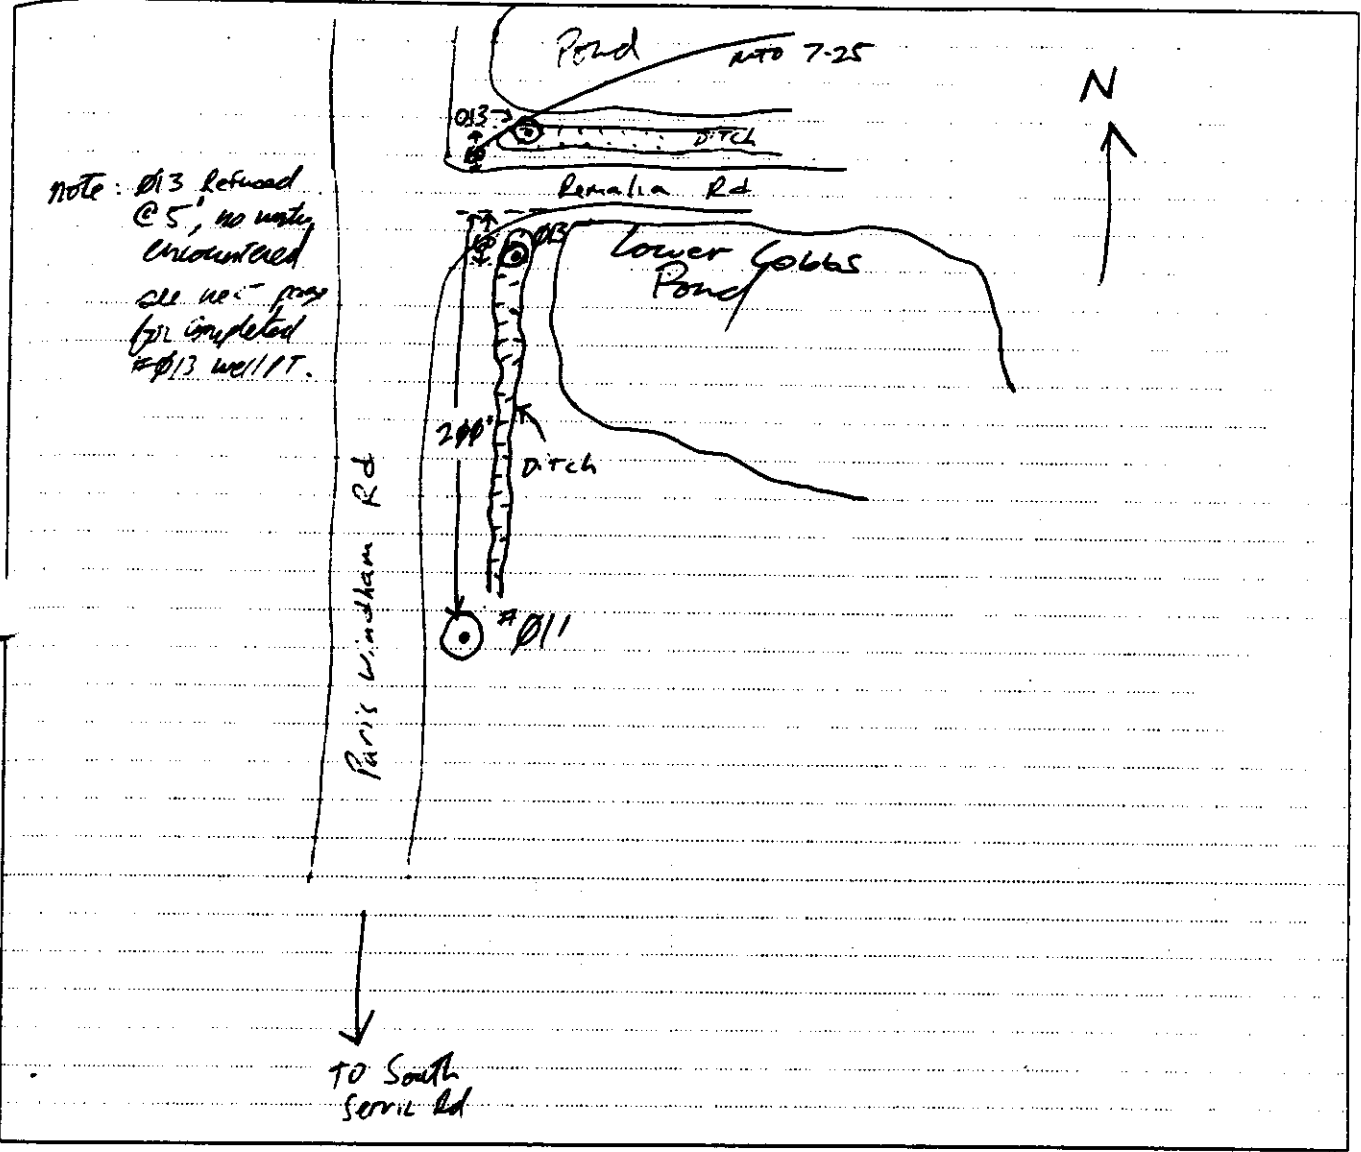 Pond
7-25
N
013
10'
DITCH
note: Ø13 Refused
@ 5', no water
encountered
see next page
for completed
#Ø13 well PT.
Remalia Rd
10'
Ø13
Lower Cobbs
Pond
2ØØ'
Ditch
Paris Windham Rd
#Ø11
TO South
Servic Rd